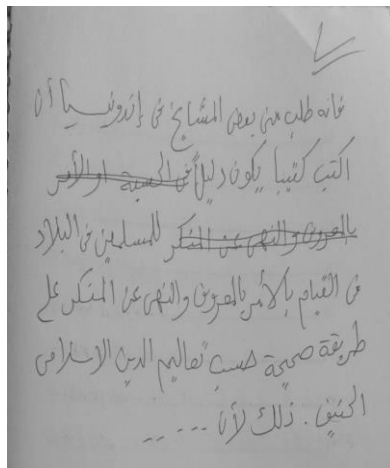 فانه طلب مني بعض المشايخ في إندونيسيا أن
اكتب كتيبا يكون دليلاً في الحسبة او الأمر
بالمعروف والنهى عن المنكر للمسلمين في البلاد
في القيام بالأمر بالمعروف والنهى عن المنكر على
طريقة صحيحة حسب تعاليم الدين الاسلامى
الحنيف. ذلك لأن .....